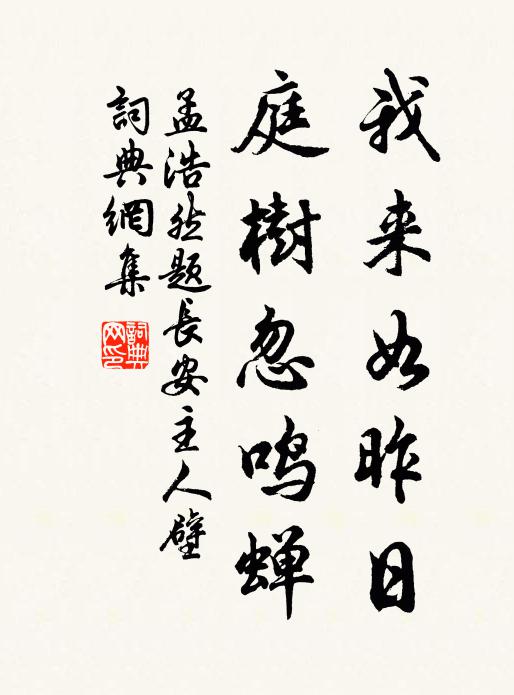 我来如昨日
庭樹忽鸣蝉
孟浩然题長安主人壁
詞典網集
詞典网印